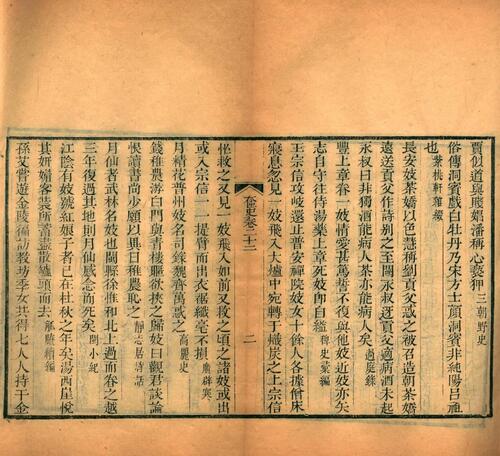 賈似道與殿娼潘稱心褻狎三朝野史
俗傳洞賓戲白牡丹乃宋方士顏洞賓非純陽呂祖
也紫桃軒雜綴
長安妓茶嬌以色慧稱劉貢父惑之被召造朝茶嬌
遠送貢父作詩別之至闕永叔迓貢父適病酒未起
永叔曰非獨酒能病人茶亦能病人矣過庭錄
豐上章眷一妓情愛甚篤誓不復與他妓近妓亦矢
志自守往侍湯藥上章死妓即自縊稗史彙編
王宗信攻岐還止普安禪院妓女十餘人各據僧床
寢息忽見一妓飛入大爐中宛轉于熾炭之上宗信
奩史卷二十二
二
怪救之又見一妓飛入如前又救之頃之諸妓或出
或入宗信一一提臂而出衣裾纖毫不損鑑辟異
月精花普州妓名司錄魏齊萬惑之高麗史
錢稚農游白門與青樓暱欲挾之歸妓曰觀君談論
快讀書尚少願以異日稚農恥之靜志居詩話
月仙者武林名妓也關縣徐惟和北上過而眷之越
三年復過其地則月仙感念而死矣閩小紀
江陰有妓號紅娘子者已在杜秋之年矣湯西崖悅
其妍媚客裝所蓄盡散壚頭而去觚賸續編
孫艾嘗遊金陵徧訪教坊季女共得七人人持千金